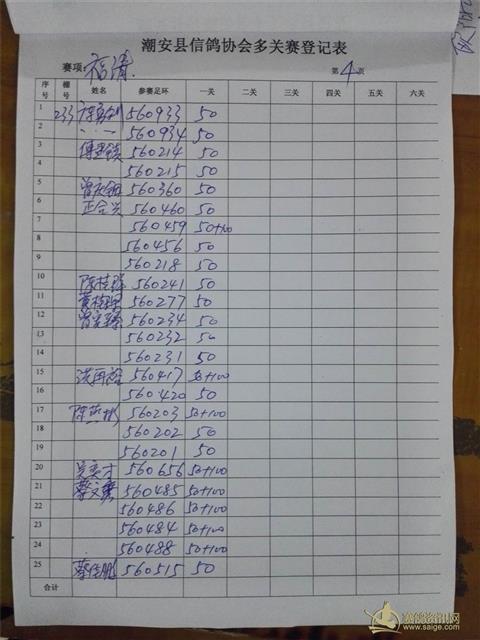 潮安县信鸽协会多关赛登记表
赛项: 福清 第 4 页
序号 棚号 姓名 参赛足环 一关 二关 三关 四关 五关 六关
1 233 560933 50
2 560934 50
3 560214 50
4 560215 50
5 560360 50
6 正合兴 560460 50
7 560459 50+100
8 560456 50
9 560218 50
10 陈桂群 560241 50
11 560277 50
12 560234 50
13 560232 50
14 560231 50
15 560417 50+100
16 560420 50
17 陈燕彬 560203 50+100
18 560202 50
19 560201 50
20 吴奕才 560656 50+100
21 560485 50+100
22 560486 50+100
23 560484 50+100
24 560488 50+100
25 蔡佳鹏 560515 50
合计
www.saige.com